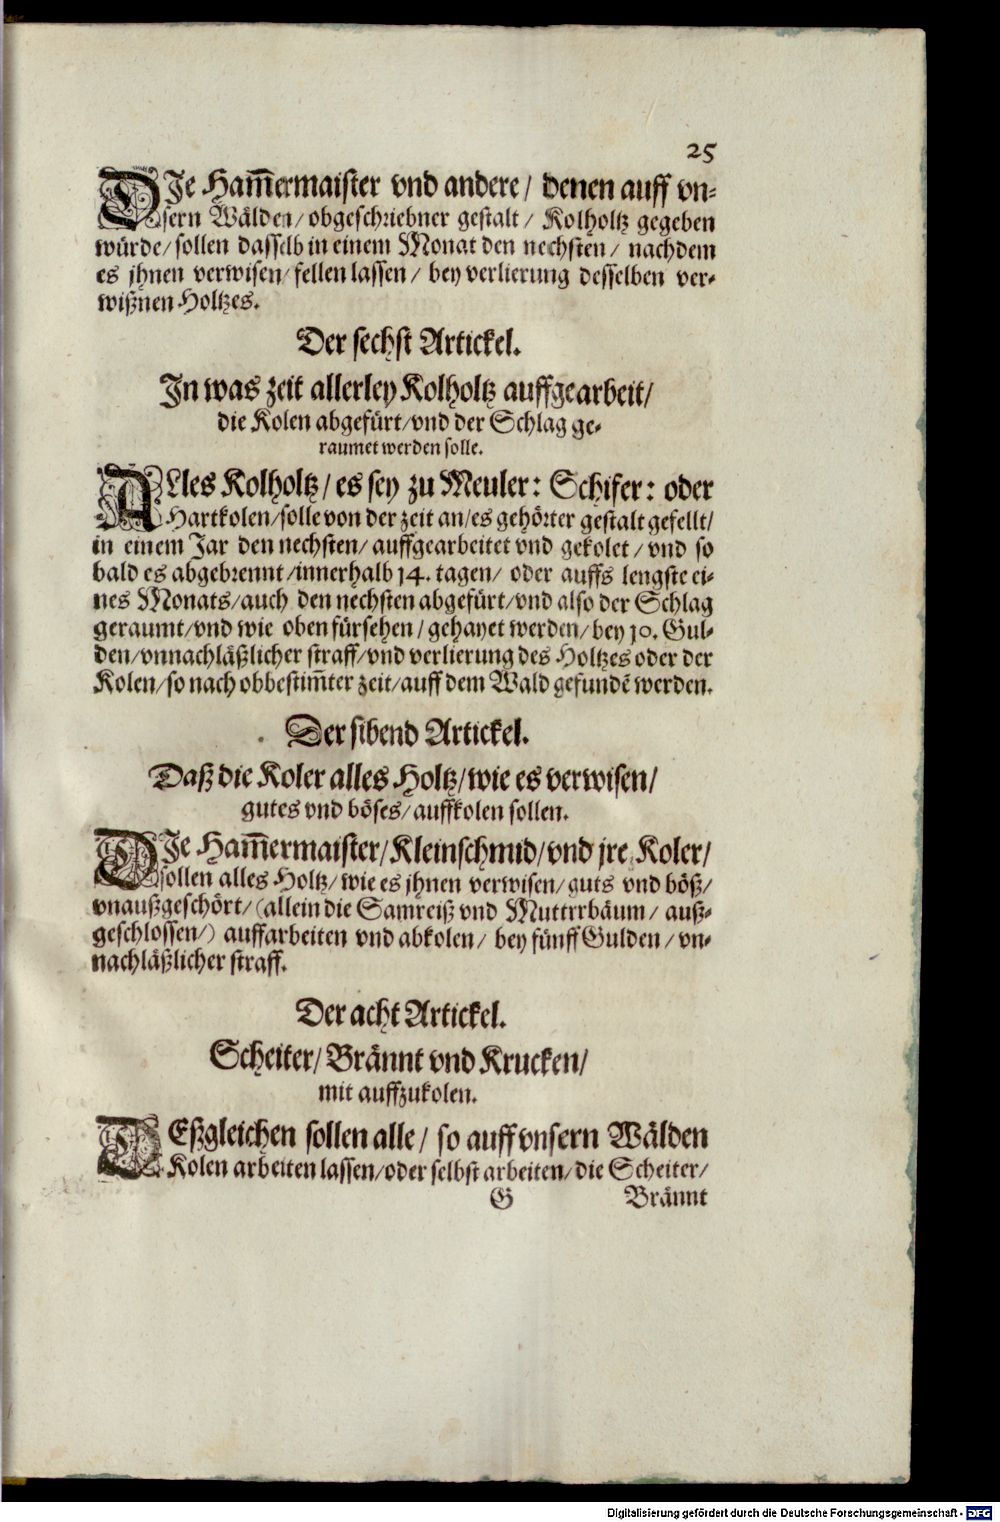 25
DIe Ham̃ermaister vnd andere / denen auff vn-
sern Wälden / obgeschriebner gestalt / Kolholtz gegeben
würde / sollen dasselb in einem Monat den nechsten / nachdem
es jhnen verwisen / fellen lassen / bey verlierung desselben ver-
wißnen Holtzes.
Der sechst Artickel.
In was zeit allerley Kolholtz auffgearbeit /
die Kolen abgefürt / vnd der Schlag ge-
raumet werden solle.
ALles Kolholtz / es sey zu Meuler: Schifer: oder
Hartkolen / solle von der zeit an / es gehörter gestalt gefellt /
in einem Jar den nechsten / auffgearbeitet vnd gekolet / vnd so
bald es abgebrennt / innerhalb 14. tagen / oder auffs lengste ei-
nes Monats / auch den nechsten abgefürt / vnd also der Schlag
geraumt / vnd wie oben fürsehen / gehayet werden / bey 10. Gul-
den / vnnachläßlicher straff / vnd verlierung des Holtzes oder der
Kolen / so nach obbestim̃ter zeit / auff dem Wald gefundẽ werden.
Der sibend Artickel.
Daß die Koler alles Holtz / wie es verwisen /
gutes vnd böses / auffkolen sollen.
DIe Ham̃ermaister / Kleinschmid / vnd jre Koler /
sollen alles Holtz / wie es jhnen verwisen / guts vnd böß /
vnaußgeschört / (allein die Samreiß vnd Muttrrbäum / auß-
geschlossen /) auffarbeiten vnd abkolen / bey fünff Gulden / vn-
nachläßlicher straff.
Der acht Artickel.
Scheiter / Brännt vnd Krucken /
mit auffzukolen.
DEßgleichen sollen alle / so auff vnsern Wälden
Kolen arbeiten lassen / oder selbst arbeiten / die Scheiter /
G Brännt
Digitalisierung gefördert durch die Deutsche Forschungsgemeinschaft - DFG